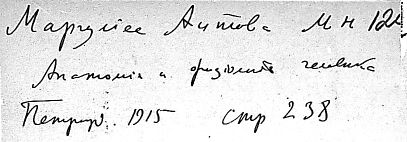 Маргулiес Аитова М н 12
Анатомiя и физiологiя человека
Петрогр. 1915 стр 238